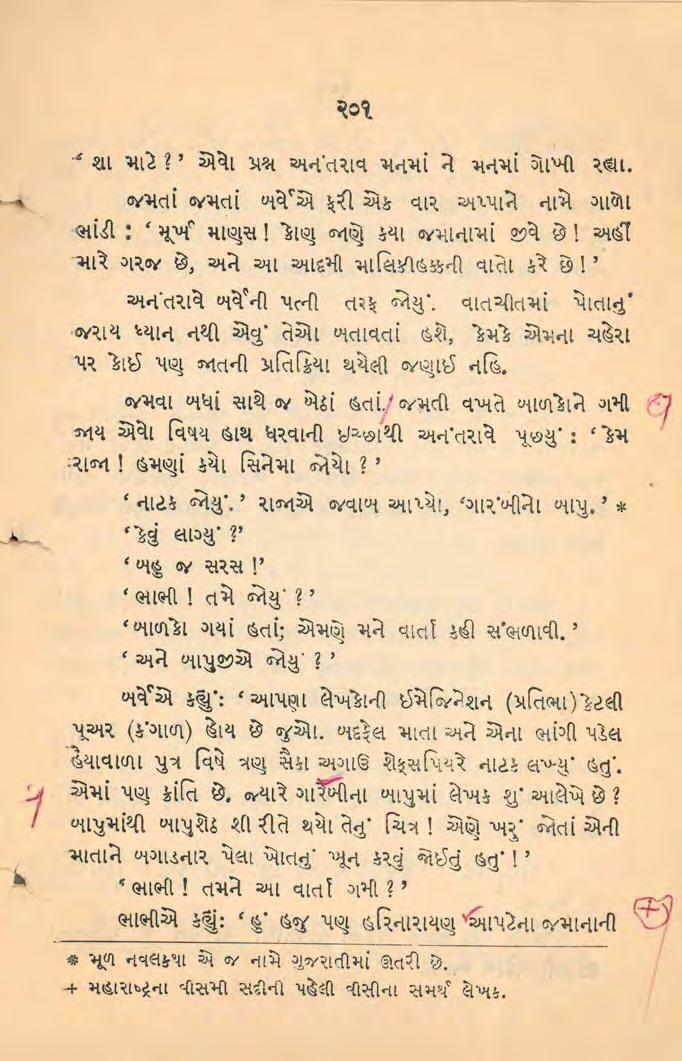 ૨૦૧
‘ શા માટે ? ’ એવો પ્રશ્ન અનંતરાવ મનમાં ને મનમાં ગોખી રહ્યા.
જમતાં જમતાં બર્વેએ ફરી એક વાર અપ્પાને નામે ગાળો
ભાંડી : ‘ મૂર્ખ માણસ ! કોણ જાણે કયા જમાનામાં જીવે છે ! અહીં
મારે ગરજ છે, અને આ આદમી માલિકીહક્કની વાતો કરે છે ! ’
અનંતરાવે બર્વેની પત્ની તરફ જોયું. વાતચીતમાં પોતાનું
જરાય ધ્યાન નથી એવું તેઓ બતાવતાં હશે, કેમકે એમના ચહેરા
પર કોઈ પણ જાતની પ્રતિક્રિયા થયેલી જણાઈ નહિ.
જમવા બધાં સાથે જ બેઠાં હતાં. જમતી વખતે બાળકોને ગમી
જાય એવો વિષય હાથ ધરવાની ઇચ્છાથી અનંતરાવે પૂછ્યું : ‘ કેમ
રાજા ! હમણાં કયો સિનેમા જોયો ? ’
‘ નાટક જોયું. ’ રાજાએ જવાબ આપ્યો, ‘ગારંબીનો બાપુ. ’ *
‘ કેવું લાગ્યું ?’
‘ બહુ જ સરસ !’
‘ ભાભી ! તમે જોયું ? ’
‘બાળકો ગયાં હતાં; એમણે મને વાર્તા કહી સંભળાવી. ’
‘ અને બાપુજીએ જોયું ? ’
બર્વેએ કહ્યું: ‘ આપણા લેખકોની ઈમેજિનેશન (પ્રતિભા) કેટલી
પૂઅર (કંગાળ) હોય છે જુઓ. બદફેલ માતા અને એના ભાંગી પડેલ
હૈયાવાળા પુત્ર વિષે ત્રણ સૈકા અગાઉ શેક્સપિયરે નાટક લખ્યું હતું.
એમાં પણ ક્રાંતિ છે. જ્યારે ગારંબીના બાપુમાં લેખક શું આલેખે છે ?
બાપુમાંથી બાપુશેઠ શી રીતે થયો તેનું ચિત્ર ! એણે ખરું જોતાં એની
માતાને બગાડનાર પેલા ખોતનું ખૂન કરવું જોઈતું હતું ! ’
‘ ભાભી ! તમને આ વાર્તા ગમી ? ’
ભાભીએ કહ્યું: ‘ હું હજુ પણ હરિનારાયણ આપટેના જમાનાની +
* મૂળ નવલકથા એ જ નામે ગુજરાતીમાં ઊતરી છે.
+ મહારાષ્ટ્રના વીસમી સદીની પહેલી વીસીના સમર્થ લેખક.